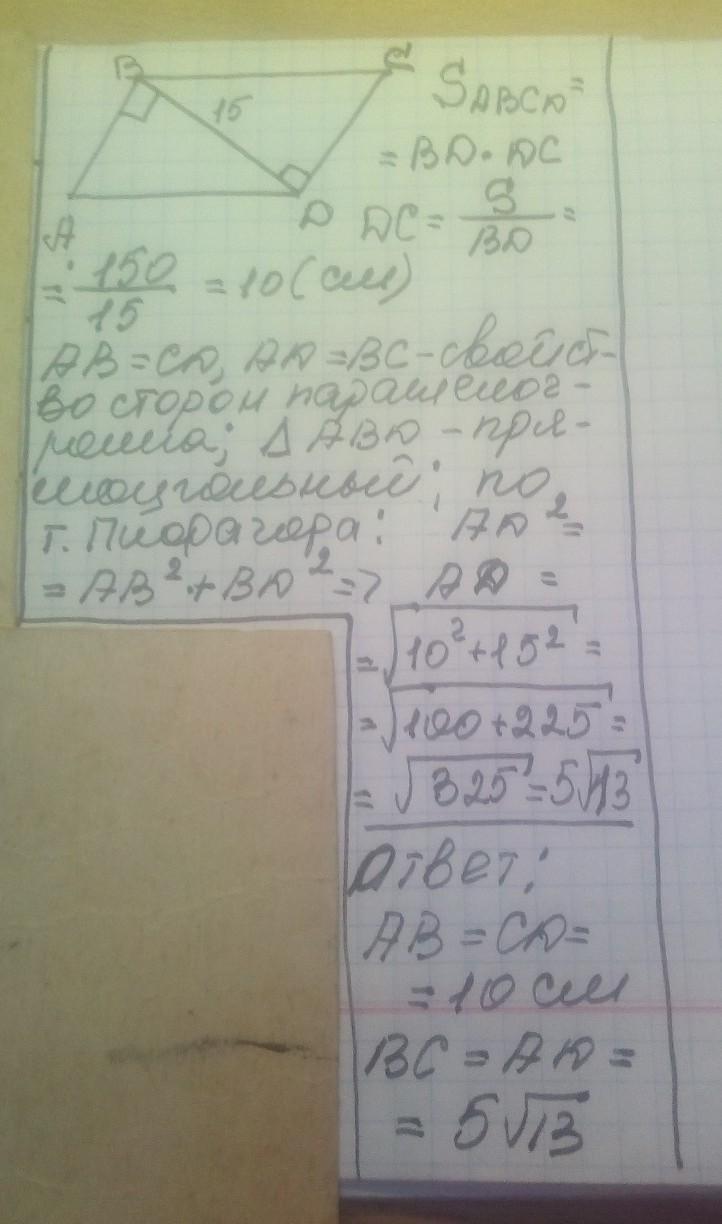 B C
15
A D
S ABCD =
= BD · DC
DC = S/BD =
= 150/15 = 10 (см)
AB = CD, AD = BC - свойст-
во сторон параллелог-
рамма; Δ ABD - пря-
моугольный; по
т. Пифагора: AD² =
= AB² + BD² => AD =
= √10² + 15² =
= √100 + 225 =
= √325 = 5√13
Ответ:
AB = CD =
= 10 см
BC = AD =
= 5√13